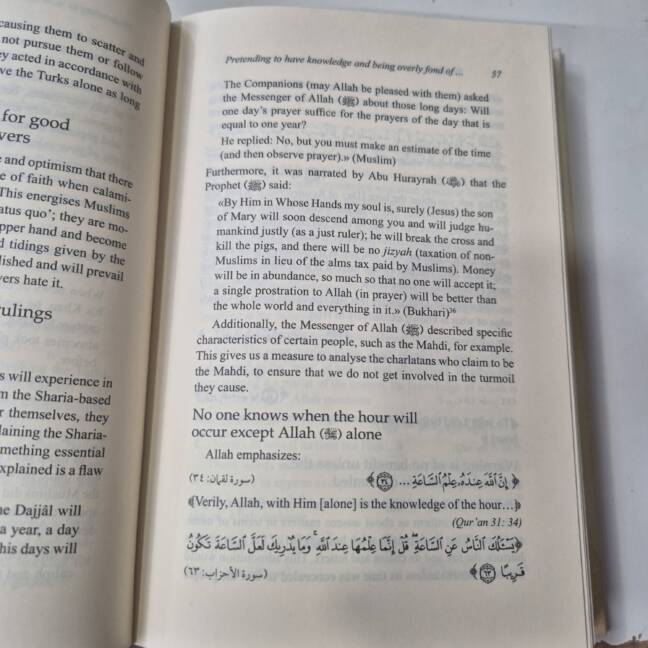 causing them to scatter and
not pursue them or follow
y acted in accordance with
ve the Turks alone as long
for good
vers
e and optimism that there
e of faith when calami-
This energises Muslims
atus quo’; they are mo-
pper hand and become
d tidings given by the
lished and will prevail
vers hate it.
ulings
s will experience in
m the Sharia-based
r themselves, they
laining the Sharia-
mething essential
xplained is a flaw
ne Dajjâl will
a year, a day
his days will
Pretending to have knowledge and being overly fond of ... 57
The Companions (may Allah be pleased with them) asked
the Messenger of Allah (ﷺ) about those long days: Will
one day’s prayer suffice for the prayers of the day that is
equal to one year?
He replied: No, but you must make an estimate of the time
(and then observe prayer).» (Muslim)
Furthermore, it was narrated by Abu Hurayrah () that the
Prophet (ﷺ) said:
«By Him in Whose Hands my soul is, surely (Jesus) the son
of Mary will soon descend among you and will judge hu-
mankind justly (as a just ruler); he will break the cross and
kill the pigs, and there will be no jizyah (taxation of non-
Muslims in lieu of the alms tax paid by Muslims). Money
will be in abundance, so much so that no one will accept it;
a single prostration to Allah (in prayer) will be better than
the whole world and everything in it.» (Bukhari)³⁶
Additionally, the Messenger of Allah (ﷺ) described specific
characteristics of certain people, such as the Mahdi, for example.
This gives us a measure to analyse the charlatans who claim to be
the Mahdi, to ensure that we do not get involved in the turmoil
they cause.
No one knows when the hour will
occur except Allah () alone
Allah emphasizes:
﴿إِنَّ ٱللَّهَ عِندَهُۥ عِلْمُ ٱلسَّاعَةِ ... ٣٤﴾ (سورة لقمان: ٣٤)
﴾Verily, Allah, with Him [alone] is the knowledge of the hour...﴿
(Qur’an 31: 34)
﴿يَسْـَٔلُكَ ٱلنَّاسُ عَنِ ٱلسَّاعَةِ ۖ قُلْ إِنَّمَا عِلْمُهَا عِندَ ٱللَّهِ ۚ وَمَا يُدْرِيكَ لَعَلَّ ٱلسَّاعَةَ تَكُونُ
قَرِيبًا ٦٣﴾ (سورة الأحزاب: ٦٣)